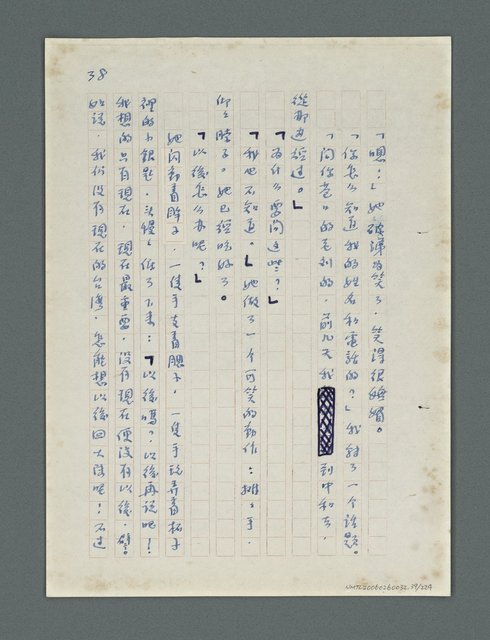 38
「嗯！」她破涕為笑了，笑得很嫵媚。
「你怎么知道我的姓名和電話的？」我對了一个話題。
「問你巷口的毛利的，前几天我到中和去，
從那边經过。」
「為什么要問這些？」
「我也不知道。」她做了一个可笑的動作：攤々手，
仰々脖子。她已經吃好了。
「以後怎么办呢？」
她閃動着眸子，一隻手支着腮子，一隻手玩弄着杯子
裡的小銀匙，头慢々低了下來：「以後嗎？以後再說吧！
我想的只有現在，現在最重要，沒有現在便沒有以後，譬
如說，我們沒有現在的台灣，怎能想以後回大陸呢！不过
NMTL20060260032.39/224